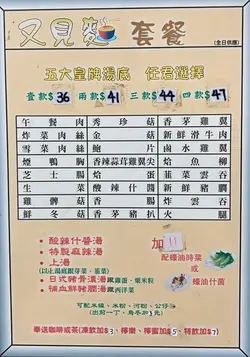 又見麵 套餐
(全日供應)
五大皇牌湯底 任君選擇
壹款$36 兩款$41 三款$44 四款$47
午餐肉 秀珍菇 香茅雞翼
炸菜肉絲 金菇 新鮮滑牛肉
雪菜肉絲 鮑片 鹵水雞翼
煙鴨胸 香辣蒜茸雞翼尖 魚柳
芝士腸 蛤蛋 韮菜雲吞
生菜 酸辣什醬 新鮮豬膶
雞髀菇 香腸 炸雲吞
鮮冬菇 香茅豬扒 火腿
• 酸辣什醬湯
• 特製麻辣湯
• 上湯
(以上湯底跟芽菜、韮菜)
• 日式豬骨濃湯跟雞蛋、粟米粒
• 補血鮮豬膶湯跟西洋菜
加$11
配蠔油時菜
或
蠔油什菌
可配米線、米粉、河粉、公仔
(出前一丁、烏冬另3元)
奉送咖啡或茶(凍飲加$3、檸樂、檸蜜加$5、特飲加$7)